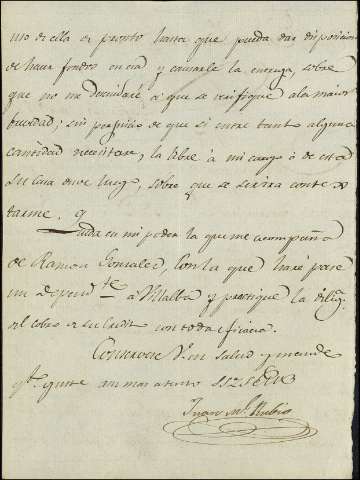 uso de ella de pronto hasta que pueda dar disposicion
de hacer fondos en esa y causarle la entrega, sobre
que no me descuidaré a que se verifique ala maior
brevedad; sin perjuicio de que si entre tanto alguna
cantidad necesitare, la libre à mi cargo ò de esta
su Casa sobre que se servira contes
tarme. q
Queda en mi poder la que me acompaña
de Ramon Gonzalez, con la que haré pase
un Depend.te a Villalba y practique la dilig.
del cobro de su Credit con toda eficacia.
Conservese V. en salud y mande
q.to guste a su mas atento
Juan M. Rubio